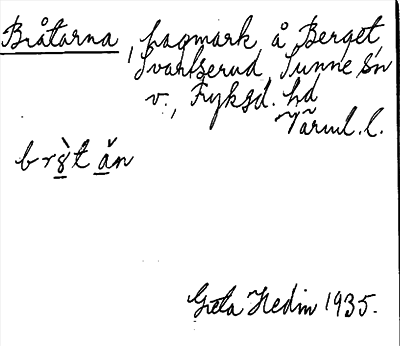 Bråtarna, hagmark å Berget,
Svartserud, Sunne sn
v., Fryksd. hd
Värml. l.
brèt ăn
Greta Hedin 1935.